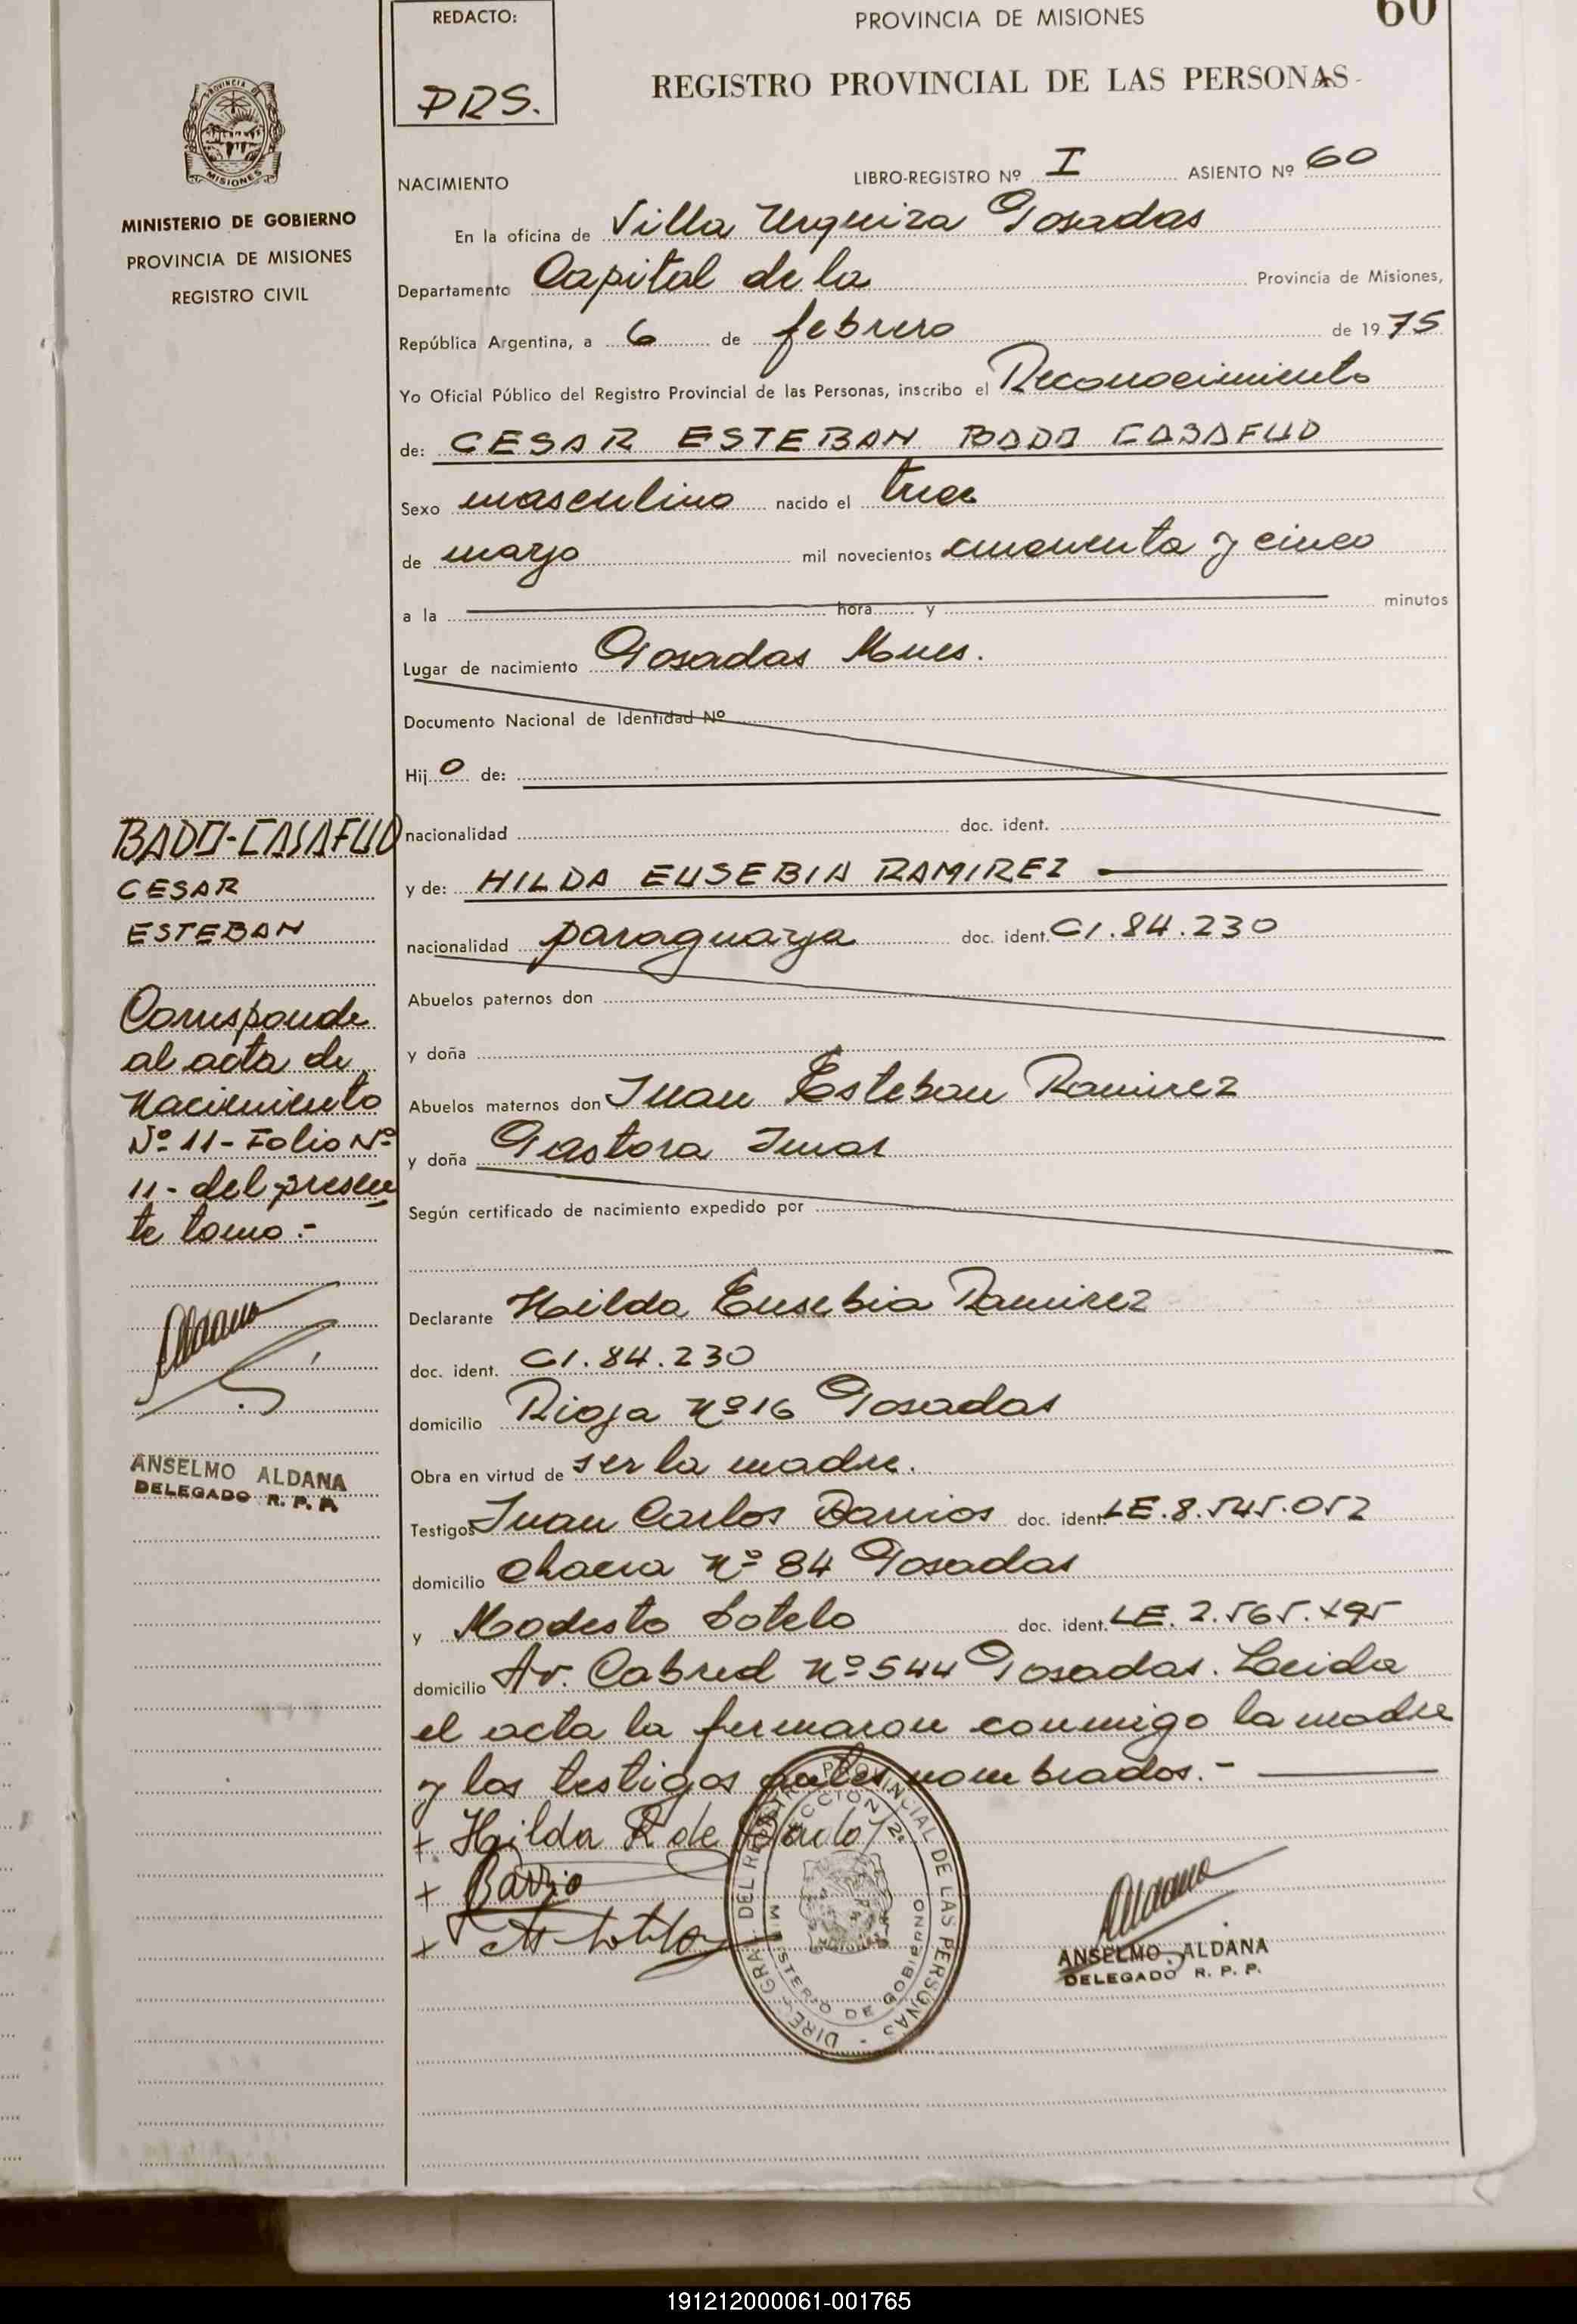 REDACTO:
PRS.
PROVINCIA DE MISIONES
60
REGISTRO PROVINCIAL DE LAS PERSONAS
PROVINCIA DE
MISIONES
MINISTERIO DE GOBIERNO
PROVINCIA DE MISIONES
REGISTRO CIVIL
NACIMIENTO
LIBRO-REGISTRO Nº I ASIENTO Nº 60
En la oficina de Villa Urquiza Posadas
Departamento Capital de la Provincia de Misiones,
República Argentina, a 6 de febrero de 1975
Yo Oficial Público del Registro Provincial de las Personas, inscribo el Reconocimiento
de: CESAR ESTEBAN BADO CASAFUD
Sexo masculino nacido el tres
de mayo mil novecientos cincuenta y cinco
a la hora y minutos
Lugar de nacimiento Posadas Mnes.
Documento Nacional de Identidad Nº
Hijo de:
nacionalidad doc. ident.
y de: HILDA EUSEBIA RAMIREZ
nacionalidad paraguaya doc. ident. CI. 84.230
Abuelos paternos don
y doña
Abuelos maternos don Juan Esteban Ramirez
y doña Pastora
Según certificado de nacimiento expedido por
Declarante Hilda Eusebia Ramirez
doc. ident. CI. 84.230
domicilio Rioja nº 16 Posadas
Obra en virtud de ser la madre.
Testigos Juan Carlos Barrios doc. ident. LE. 8.545.052
domicilio chacra nº 84 Posadas
y Modesto Sotelo doc. ident. LE. 2.565.
domicilio Av. Cabred nº 544 Posadas. Leida
el acta la firmaron conmigo la madre
y los testigos antes nombrados.-
+ Hilda R de Bado
+ Barrio
+
DIREC. GRAL. DEL REGISTRO PROVINCIAL DE LAS PERSONAS
MINISTERIO DE GOBIERNO
Aldana
ANSELMO ALDANA
DELEGADO R. P. P.
BADO-CASAFUD
CESAR
ESTEBAN
Corresponde
al acta de
Nacimiento
Nº 11- Folio Nº
11- del presen
te tomo.-
Aldana
ANSELMO ALDANA
DELEGADO R. P. P.
191212000061-001765